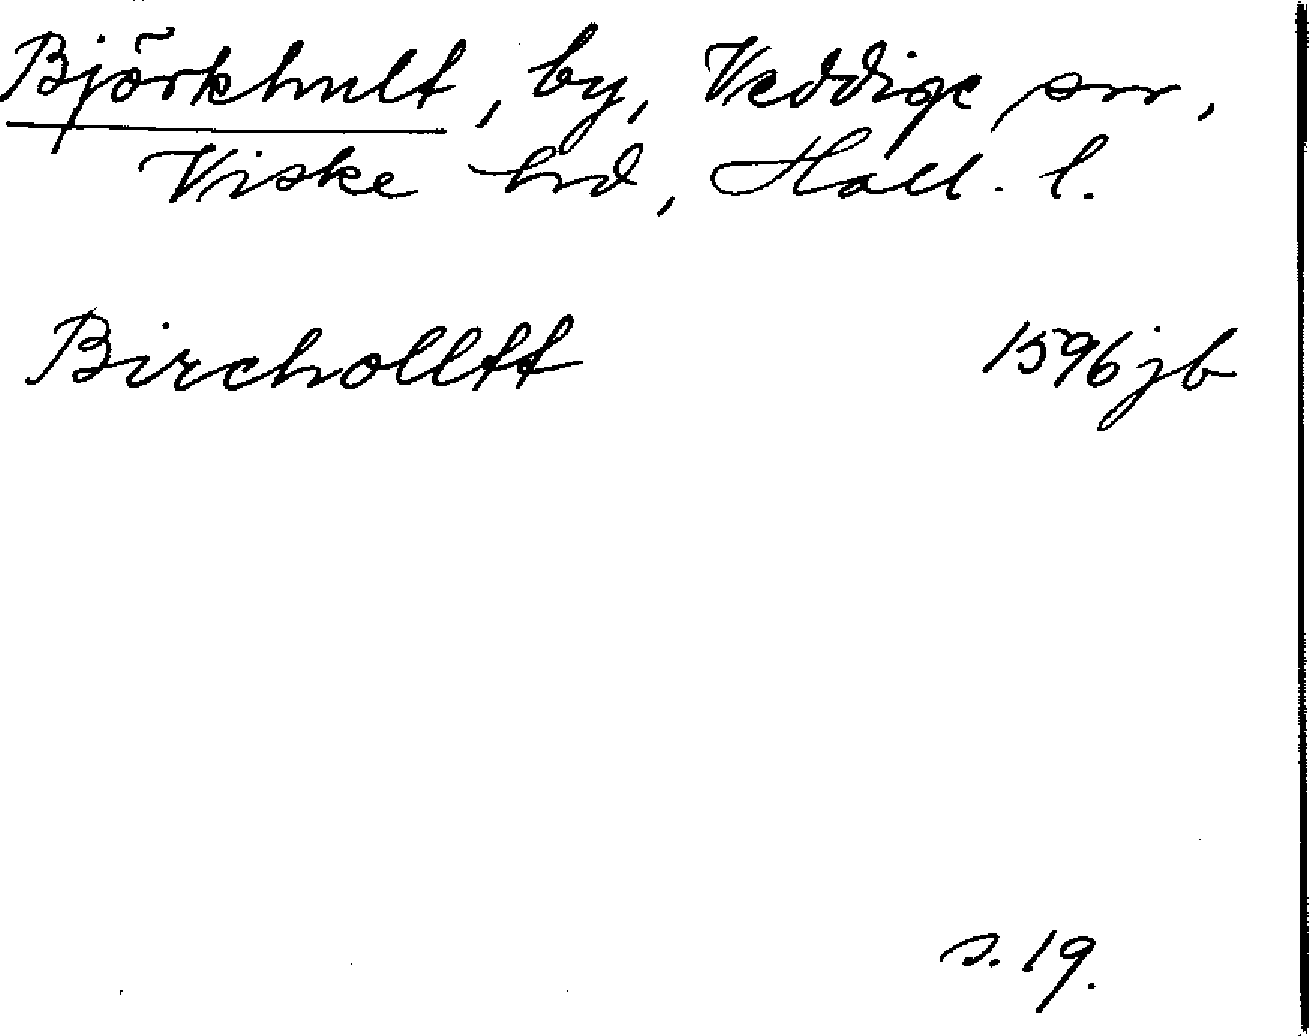 Björkhult, by, Veddige sn,
Viske hd, Hall. l.
Bircholltt 1596 jb
s. 19.